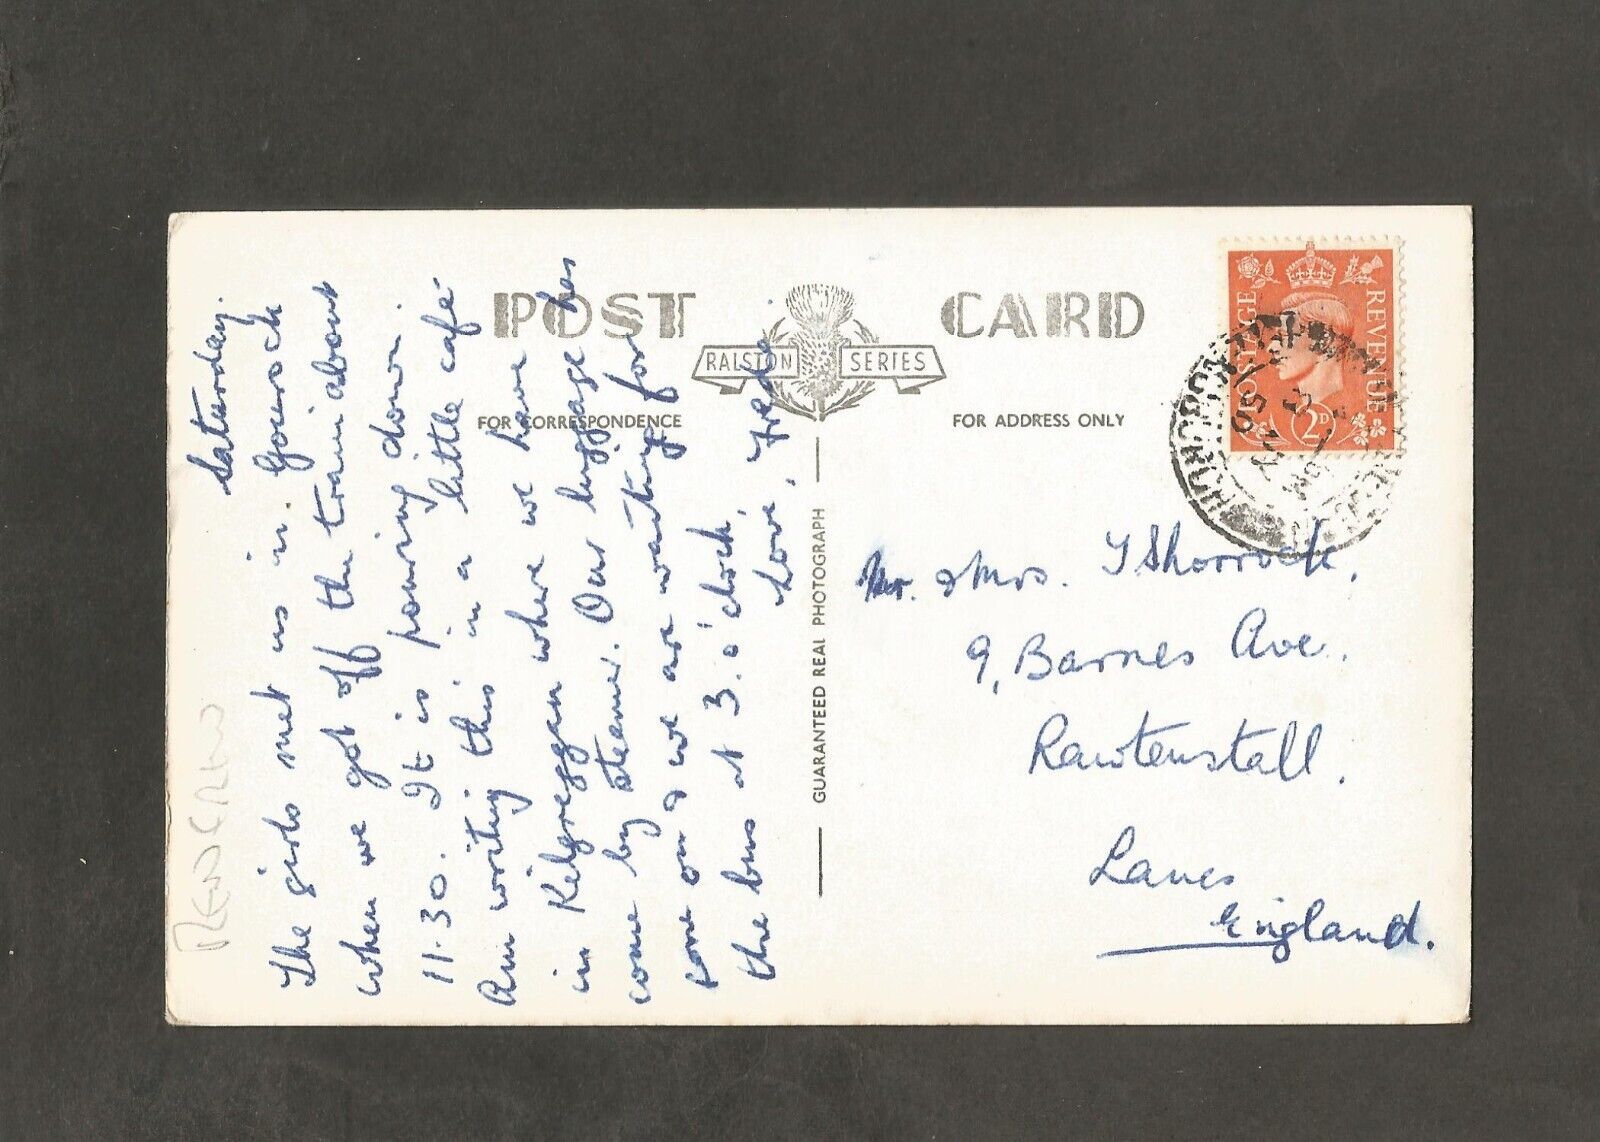 POST CARD
RALSTON SERIES
FOR CORRESPONDENCE
FOR ADDRESS ONLY
GUARANTEED REAL PHOTOGRAPH
POSTAGE REVENUE
2D
Saturday.
The girls met us in Gourock
when we got off the train about
11.30. It is pouring down.
Am writing this in a little café
in Kilgreggan where we have
come by steamer. Our luggage has
gone on & we are waiting for
the bus at 3.o'clock,
Love, Freda.
Mr. & Mrs. J Shorrock,
9, Barnes Ave.
Rawtenstall.
Lancs
England.
RENFREW